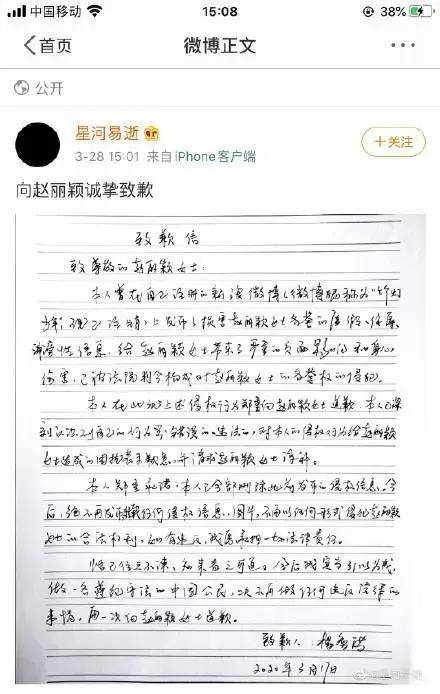 中国移动
15:08
38%
首页
微博正文
公开
星河易逝
+关注
3-28 15:01 来自 iPhone客户端
向赵丽颖诚挚致歉
致歉信
致尊敬的赵丽颖女士:
本人曾在自己注册的新浪微博(微博昵称为"
上发布了损害赵丽颖女士名誉的
性信息,给赵丽颖女士带来了严重的负面影响和身心
伤害,已被法院判令构成对赵丽颖女士的名誉权的侵犯。
本人在此为上述侵权行为郑重向赵丽颖女士道歉,本人已深
刻认识到自己的行为是错误的、违法的,对本人的侵权行为给赵丽颖
女士造成的困扰表示歉意,并请求赵丽颖女士谅解。
本人郑重承诺:本人已全部删除此前发布的侵权信息。今
后,绝不再发布任何侵权信息、图片,不再以任何形式侵犯赵丽颖
女士的合法权利,如有违反,我愿承担一切法律责任。
悟已往之不谏,知来者之可追。今后我定当引以为戒,
做一名遵纪守法的中国公民,决不再做任何违反法律的
事情。再一次向赵丽颖女士道歉。
致歉人:杨
2020年3月